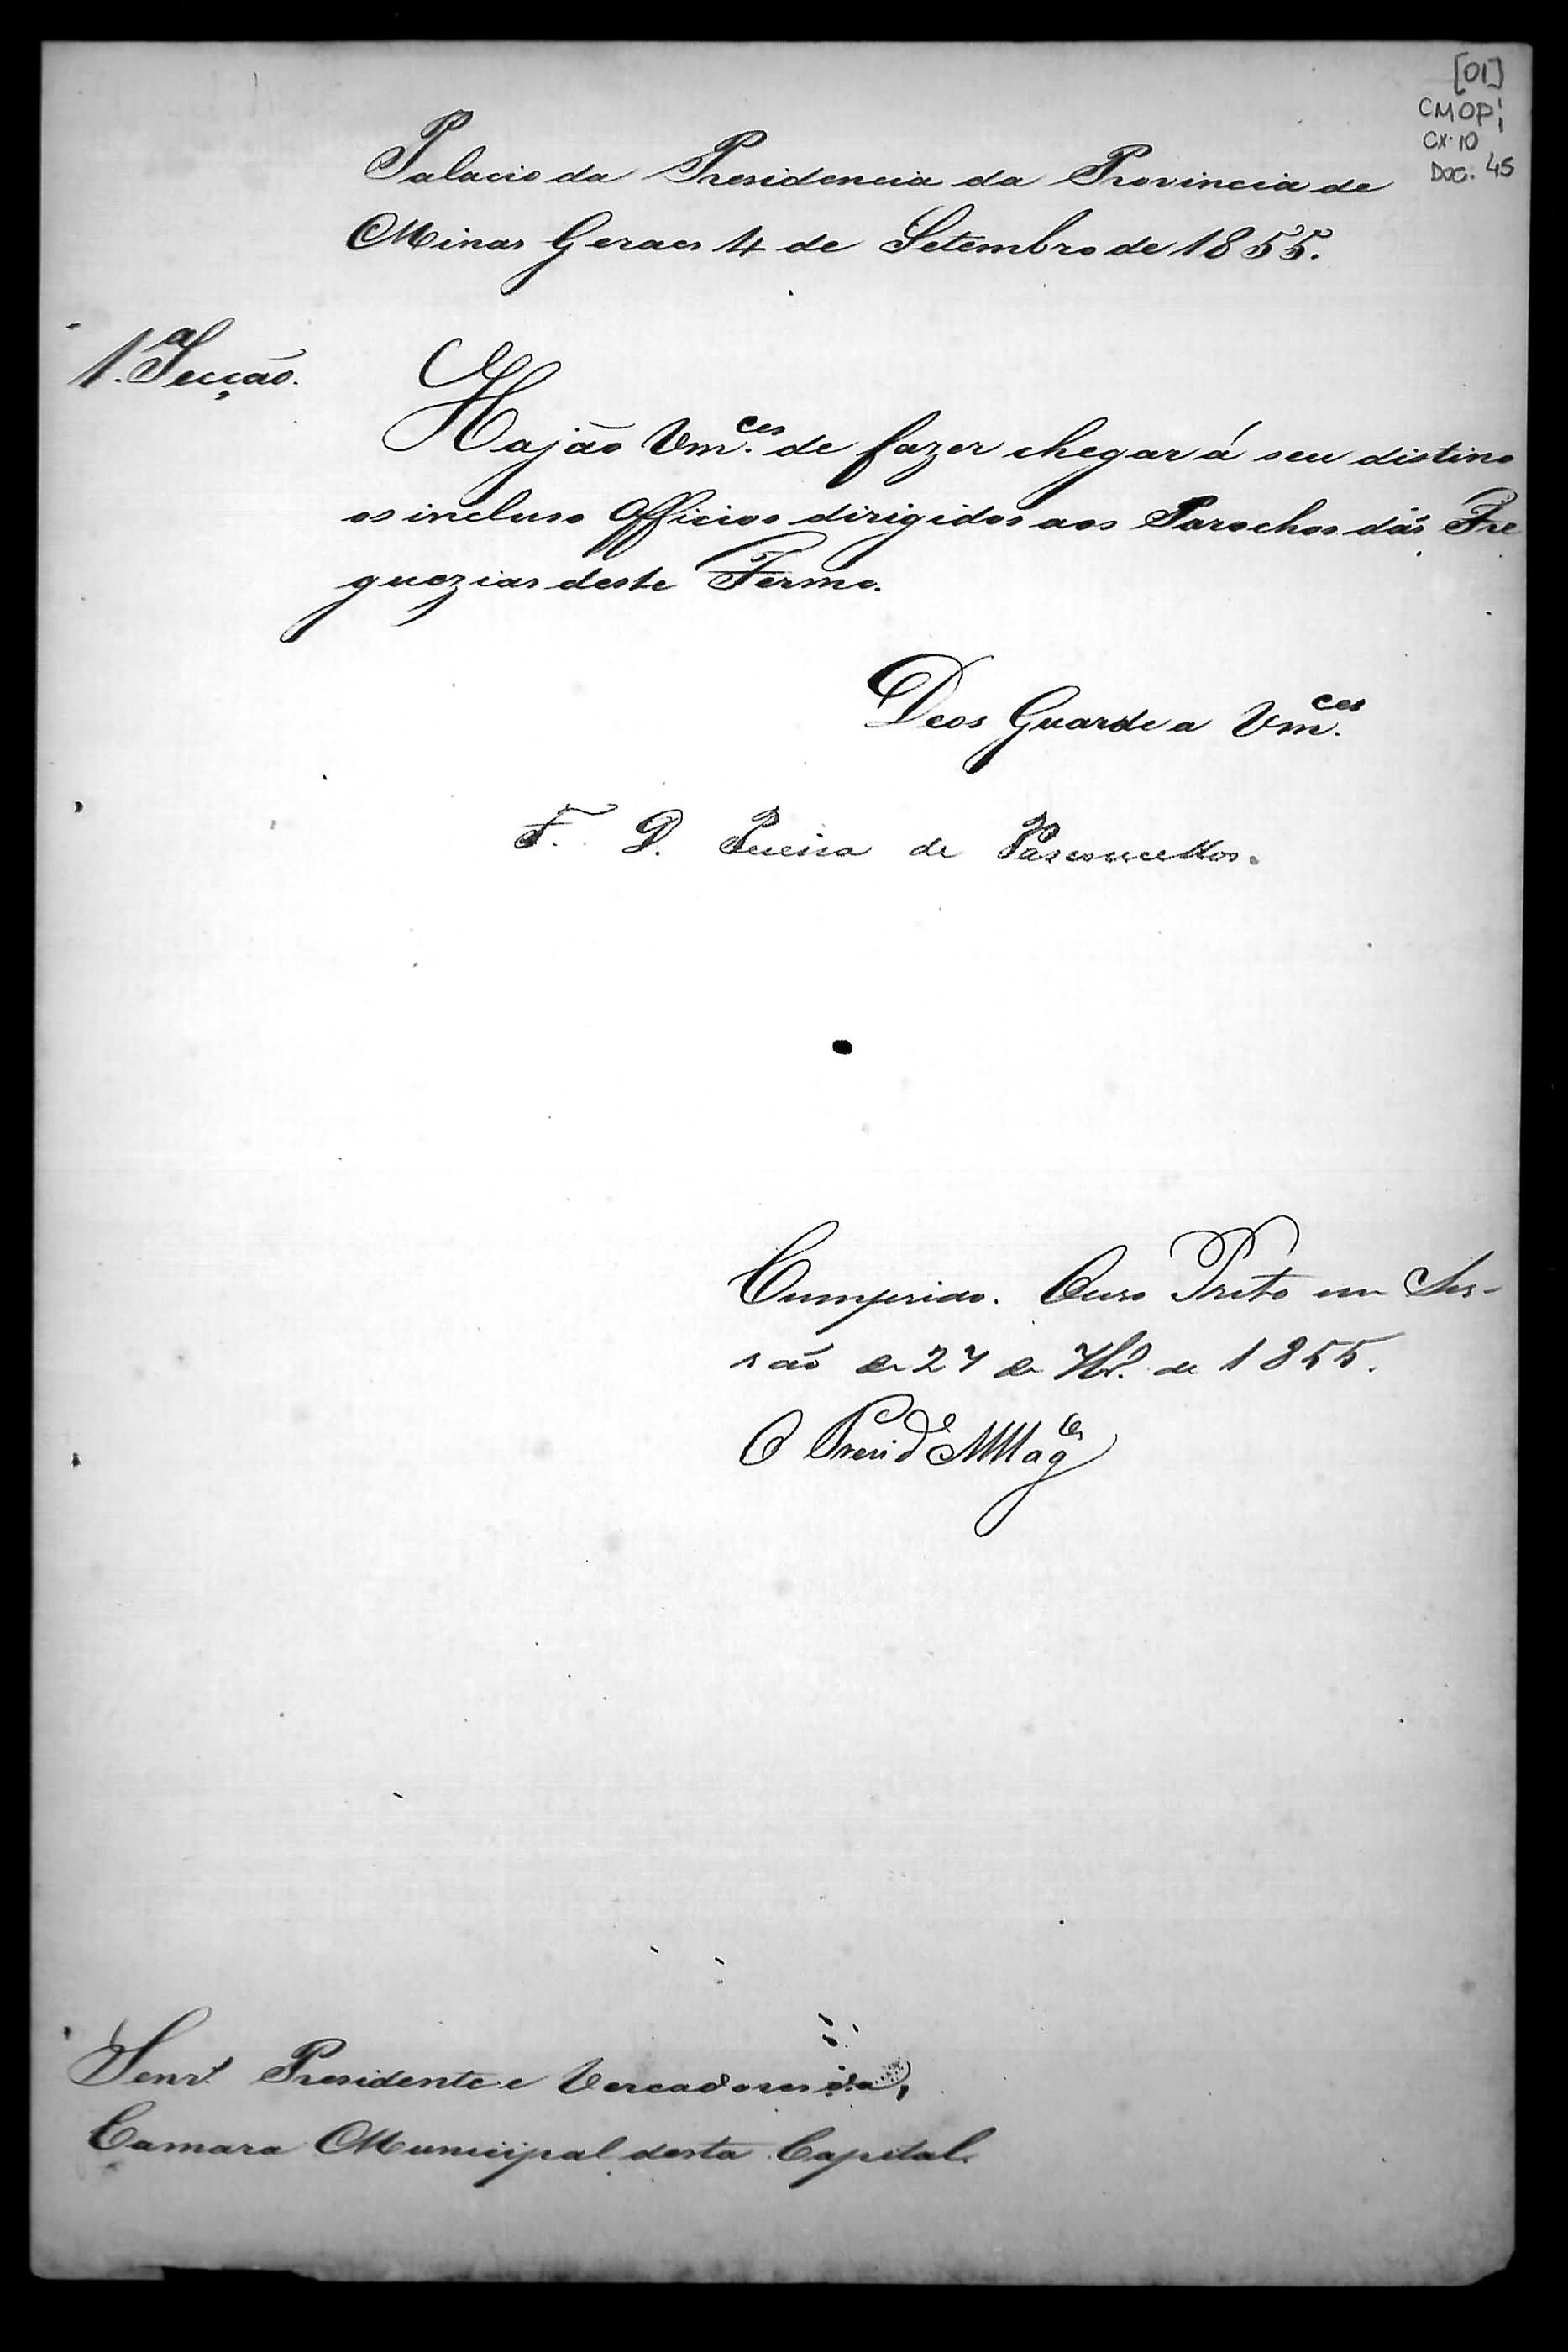 [01]
CMOPi
CX. 10
DOC. 45
Palacio da Presidencia da Provincia de
Minas Geraes 4 de Setembro de 1855.
1.ª Secção.
Hajão Vm.ces de fazer chegar á seu distino
os incluso Officios dirigidos aos Parochos das Fre
guezias deste Termo.
Deos Guarde a Vm.ces
F. D. Pereira de Vasconcellos.
Cumprido. Ouro Preto em Ses-
são de 27 de 7br.º de 1855.
O Presid.e
Senr.s Presidente e Vereadores da
Camara Municipal desta Capital.